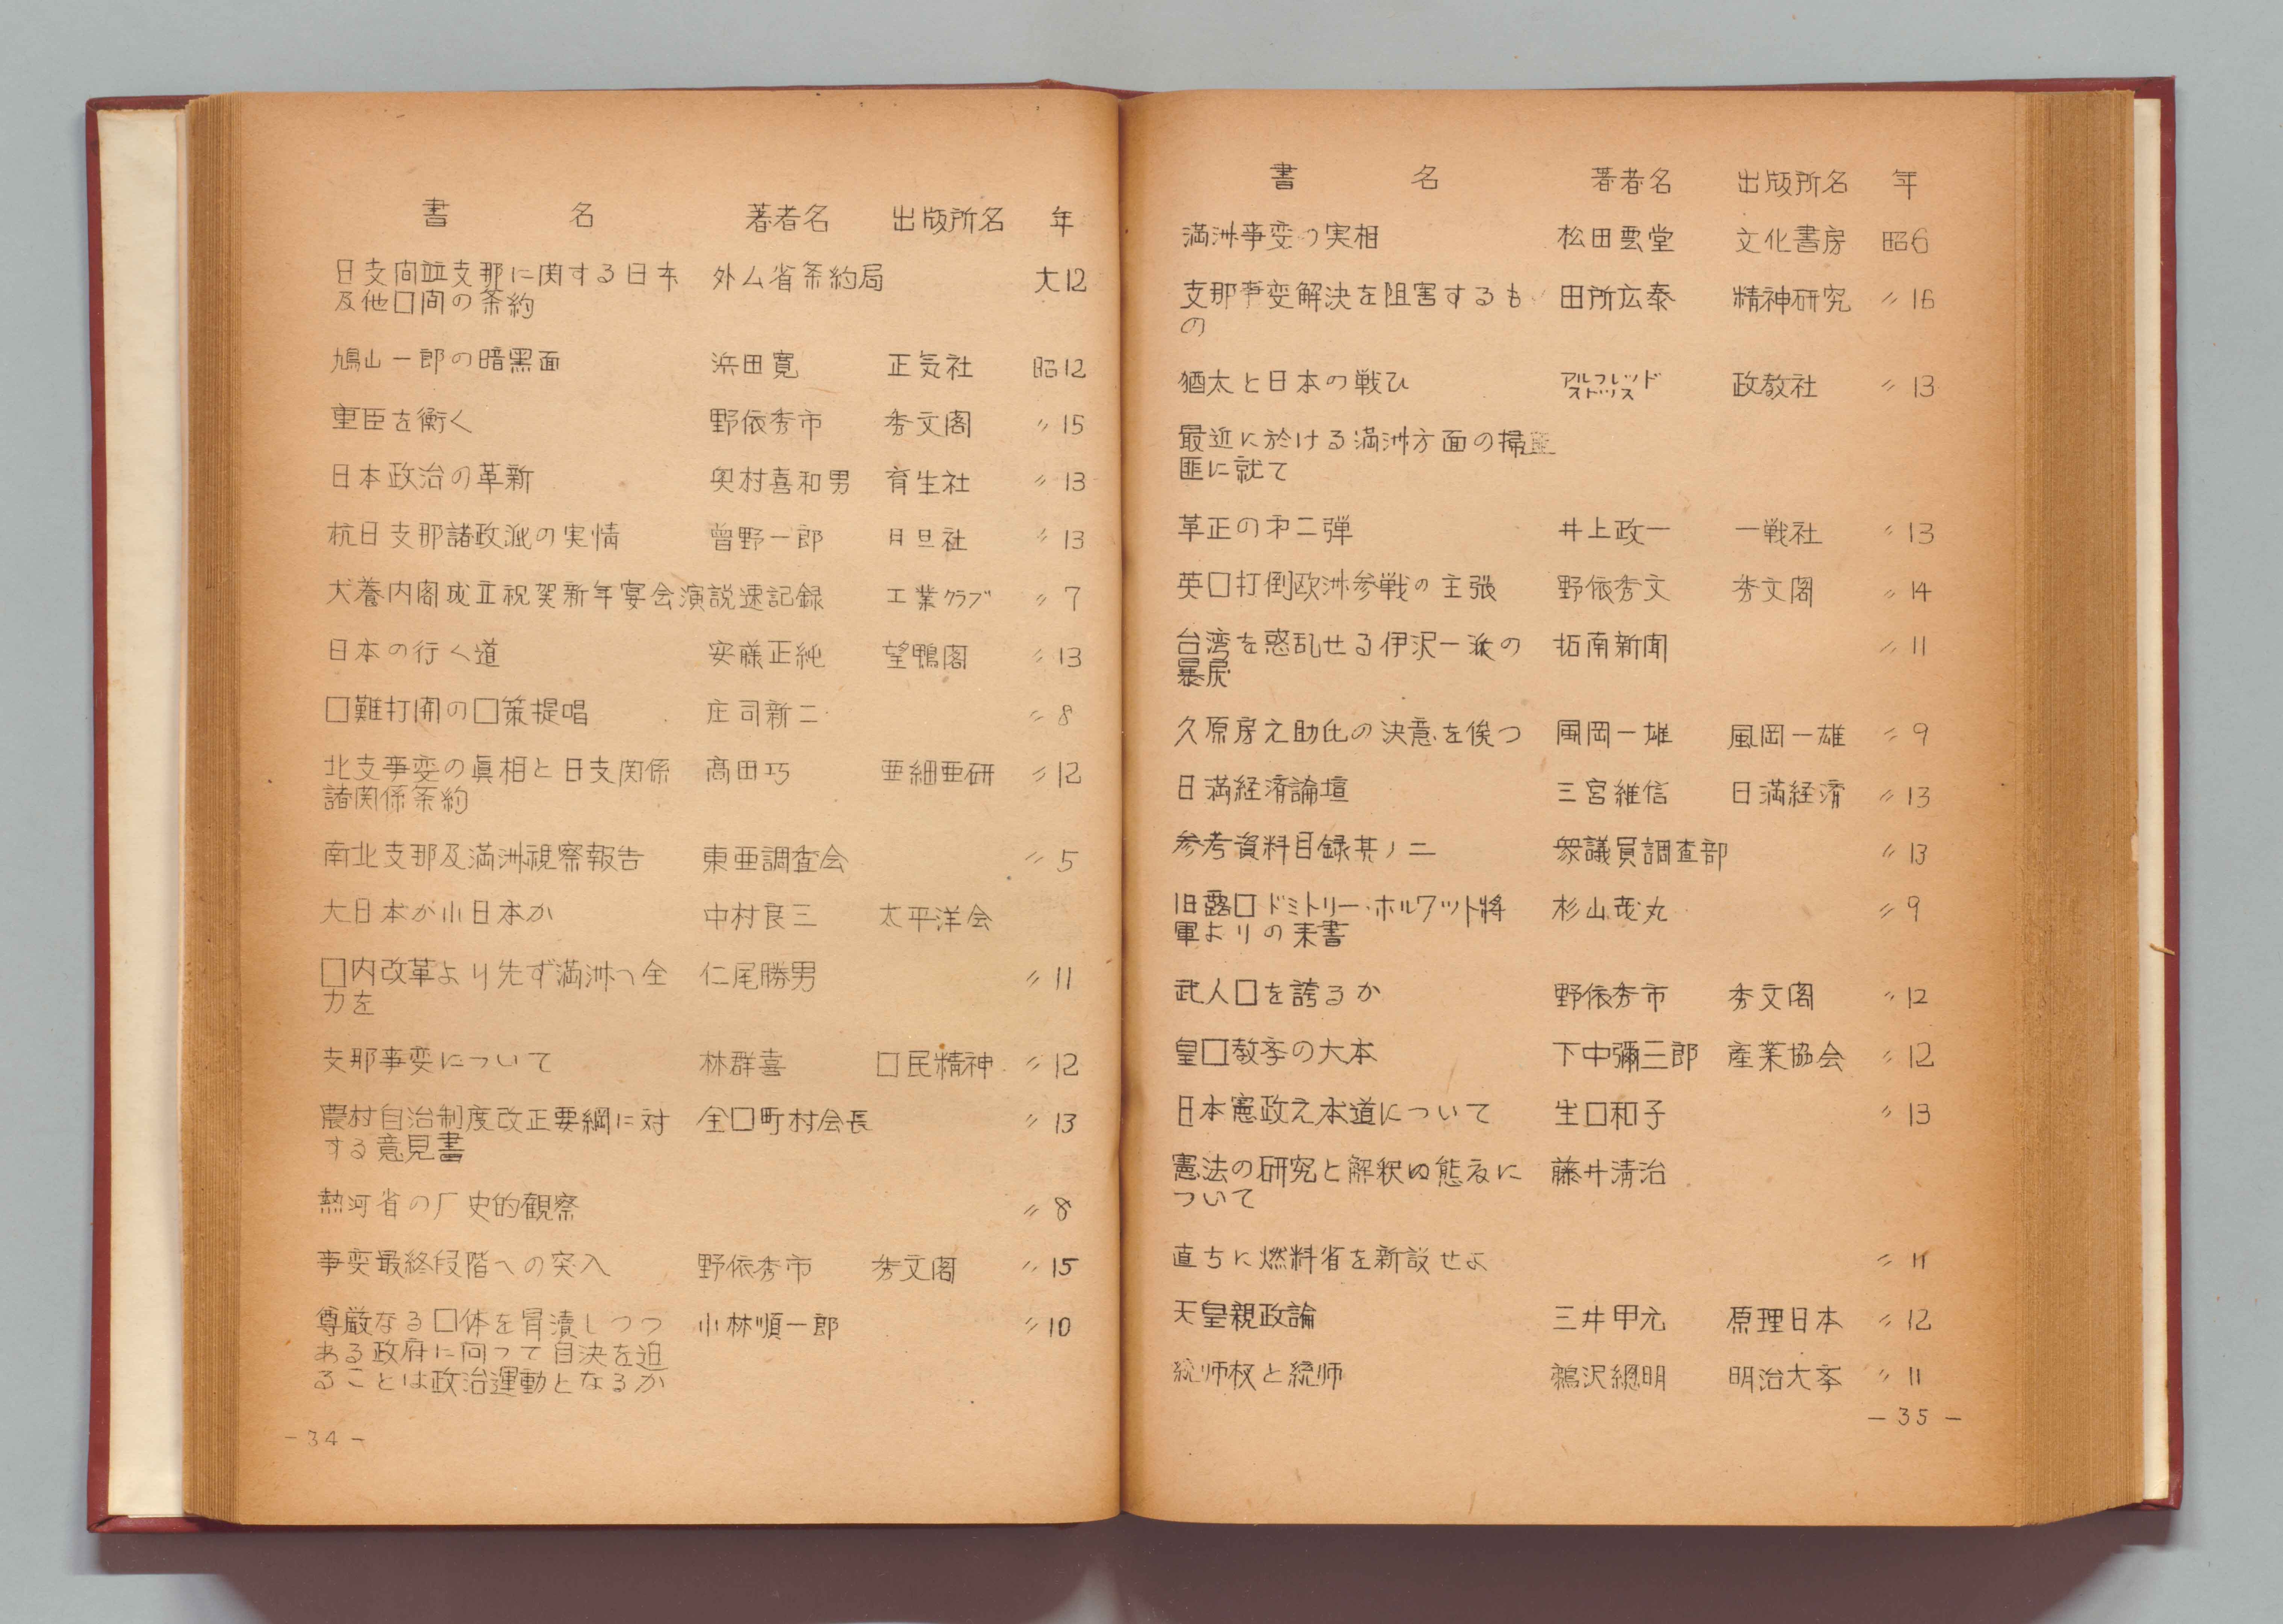 書 名 著者名 出版所名 年
日支間並支那に関する日本 外ム省条約局 大12
及他口間の条約
鳩山一郎の暗黒面 浜田寛 正気社 昭12
重臣を衝く 野依秀市 秀文閣 〃15
日本政治の革新 奥村喜和男 育生社 〃13
抗日支那諸政派の実情 曽野一郎 月旦社 〃13
犬養内閣成立祝賀新年宴会演説速記録 工業クラブ 〃7
日本の行く道 安藤正純 望鴨閣 〃13
口難打開の口策提唱 庄司新二 〃8
北支事変の眞相と日支関係 髙田巧 亜細亜研 〃12
諸関係条約
南北支那及満洲視察報告 東亜調査会 〃5
大日本か小日本か 中村良三 太平洋会
口内改革より先ず満洲へ全 仁尾勝男 〃11
力を
支那事変について 林群喜 口民精神 〃12
農村自治制度改正要綱に対 全口町村会長 〃13
する意見書
熱河省の厂史的観察 〃8
事変最終段階への突入 野依秀市 秀文閣 〃15
尊厳なる口体を冒瀆しつつ 小林順一郎 〃10
ある政府に向って自決を迫
ることは政治運動となるか
-34-
書 名 著者名 出版所名 年
満洲事変の実相 松田雲堂 文化書房 昭6
支那事変解決を阻害するも 田所広泰 精神研究 〃16
の
猶太と日本の戦ひ アルフレッド 政教社 〃13
ストッス
最近に於ける満洲方面の掃匪
匪に就て
革正の才二弾 井上政一 一戦社 〃13
英口打倒欧洲参戦の主張 野依秀文 秀文閣 〃14
台湾を惑乱せる伊沢一派の 拓南新聞 〃11
暴戻
久原房之助氏の決意を俟つ 風岡一雄 風岡一雄 〃9
日満経済論壇 三宮維信 日満経済 〃13
参考資料目録其ノ二 衆議員調査部 〃13
旧露口ドミトリー・ホルワット将 杉山茂丸 〃9
軍よりの来書
武人口を誇るか 野依秀市 秀文閣 〃12
皇口教孝の大本 下中彌三郎 産業協会 〃12
日本憲政之本道について 生口和子 〃13
憲法の研究と解釈の態度に 藤井清治
ついて
直ちに燃料省を新設せよ 〃11
天皇親政論 三井甲元 原理日本 〃12
統帅权と統帅 鵜沢總明 明治大斈 〃11
-35-